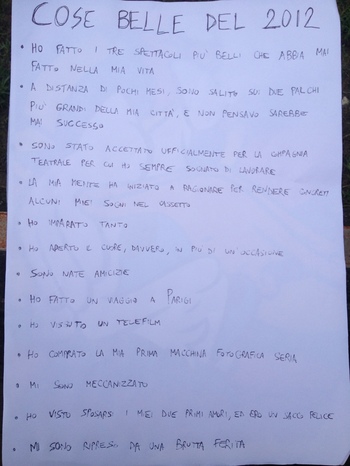 COSE BELLE DEL 2012
• HO FATTO I TRE SPETTACOLI PIU' BELLI CHE ABBIA MAI
FATTO NELLA MIA VITA
• A DISTANZA DI POCHI MESI, SONO SALITO SUI DUE PALCHI
PIU' GRANDI DELLA MIA CITTA', E NON PENSAVO SAREBBE
MAI SUCCESSO
• SONO STATO ACCETTATO UFFICIALMENTE PER LA COMPAGNIA
TEATRALE PER CUI HO SEMPRE SOGNATO DI LAVORARE
• LA MIA MENTE HA INIZIATO A RAGIONARE PER RENDERE CONCRETI
ALCUNI MIEI SOGNI NEL CASSETTO
• HO IMPARATO TANTO
• HO APERTO IL CUORE, DAVVERO, IN PIÙ DI UN'OCCASIONE
• SONO NATE AMICIZIE
• HO FATTO UN VIAGGIO A PARIGI
• HO VISSUTO UN TELEFILM
• HO COMPRATO LA MIA PRIMA MACCHINA FOTOGRAFICA SERIA
• MI SONO MECCANIZZATO
• HO VISTO SPOSARSI I MIEI DUE PRIMI AMORI, ED ERO UN SACCO FELICE
• MI SONO RIPRESO DA UNA BRUTTA FERITA